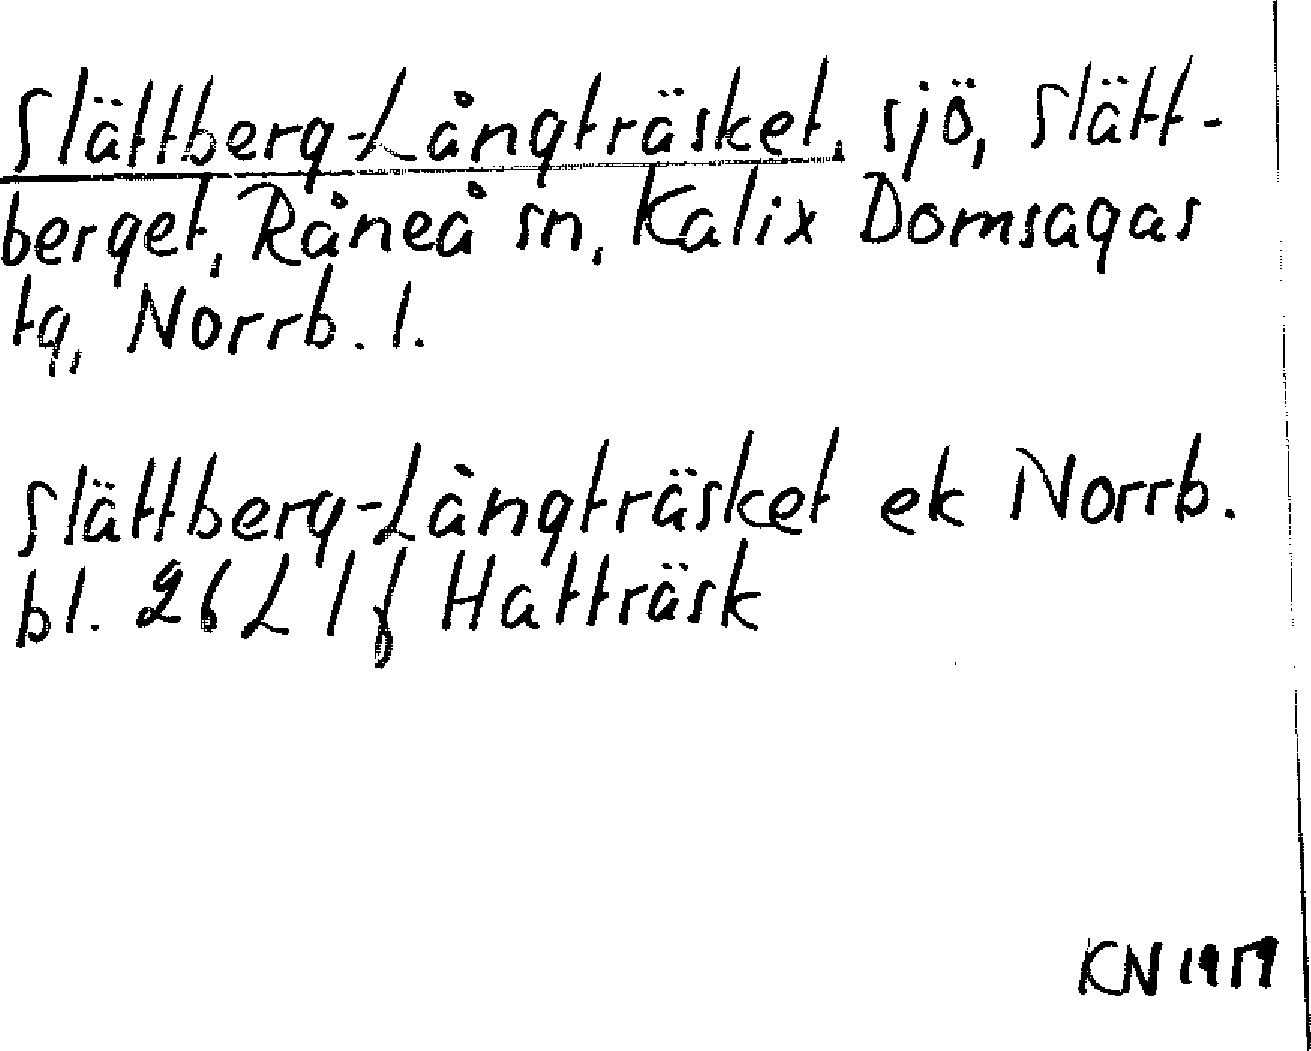 Slättberg-Långträsket, sjö, Slätt-
berget, Råneå sn, Kalix Domsagas
tg, Norrb. l.
Slättberg-Långträsket ek Norrb.
bl. 26 L 1 f Hatträsk
KN 1959